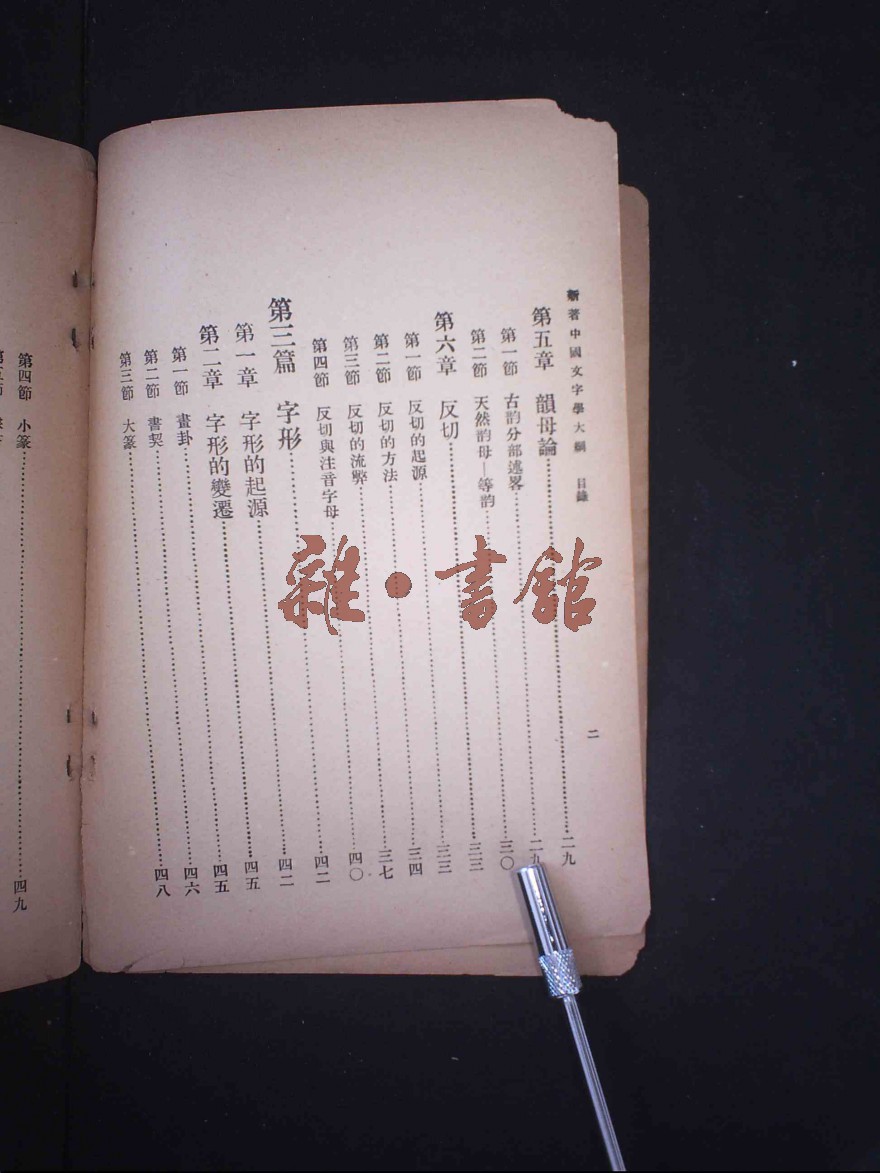 新著中國文字學大綱 目錄
二
第五章 韻母論……二九
第一節 古韵分部述畧……二九
第二節 天然韵母—等韵……三〇
第六章 反切……三三
第一節 反切的起源……三三
第二節 反切的方法……三四
第三節 反切的流弊……三七
第四節 反切與注音字母……四〇
第三篇 字形……四二
第一章 字形的起源……四二
第二章 字形的變遷……四五
第一節 畫卦……四五
第二節 書契……四六
第三節 大篆……四八
第四節 小篆……四九
雜·書館